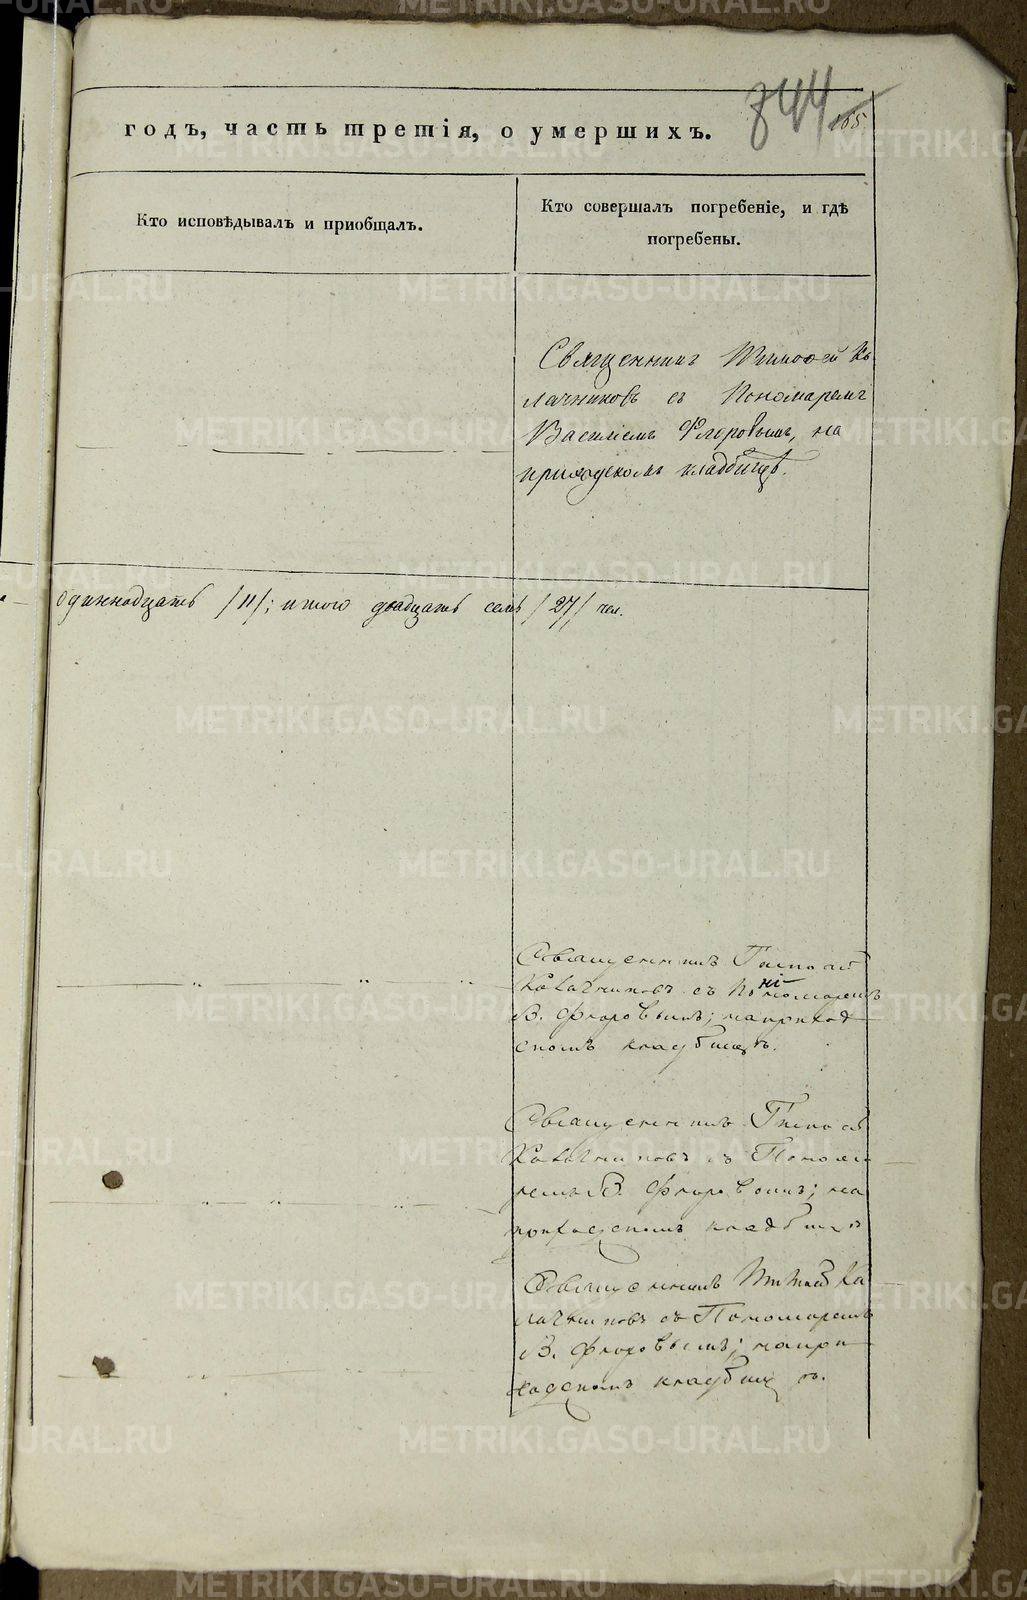 844
165
годъ, часть третія, о умершихъ.
Кто исповѣдывалъ и пріобщалъ.
Кто совершалъ погребеніе, и гдѣ
погребены.
Священникъ Тимоѳей Ка
лачниковъ съ Пономаремъ
Василіемъ Флоровымъ, на
приходскомъ кладбищѣ.
одиннадцать /11/; итого двадцать семь /27/ чел.
Священникъ Тимоѳей
Калачниковъ съ Пономаремъ
В. Флоровымъ; на приход
скомъ кладбищѣ.
Священникъ Тимоѳей
Калачниковъ съ Понома
ремъ В. Флоровымъ; на
приходскомъ кладбищѣ
Священникъ Тимоѳей Ка
лачниковъ съ Пономаремъ
В. Флоровымъ; на при
ходскомъ кладбищѣ.
METRIKI.GASO-URAL.RU